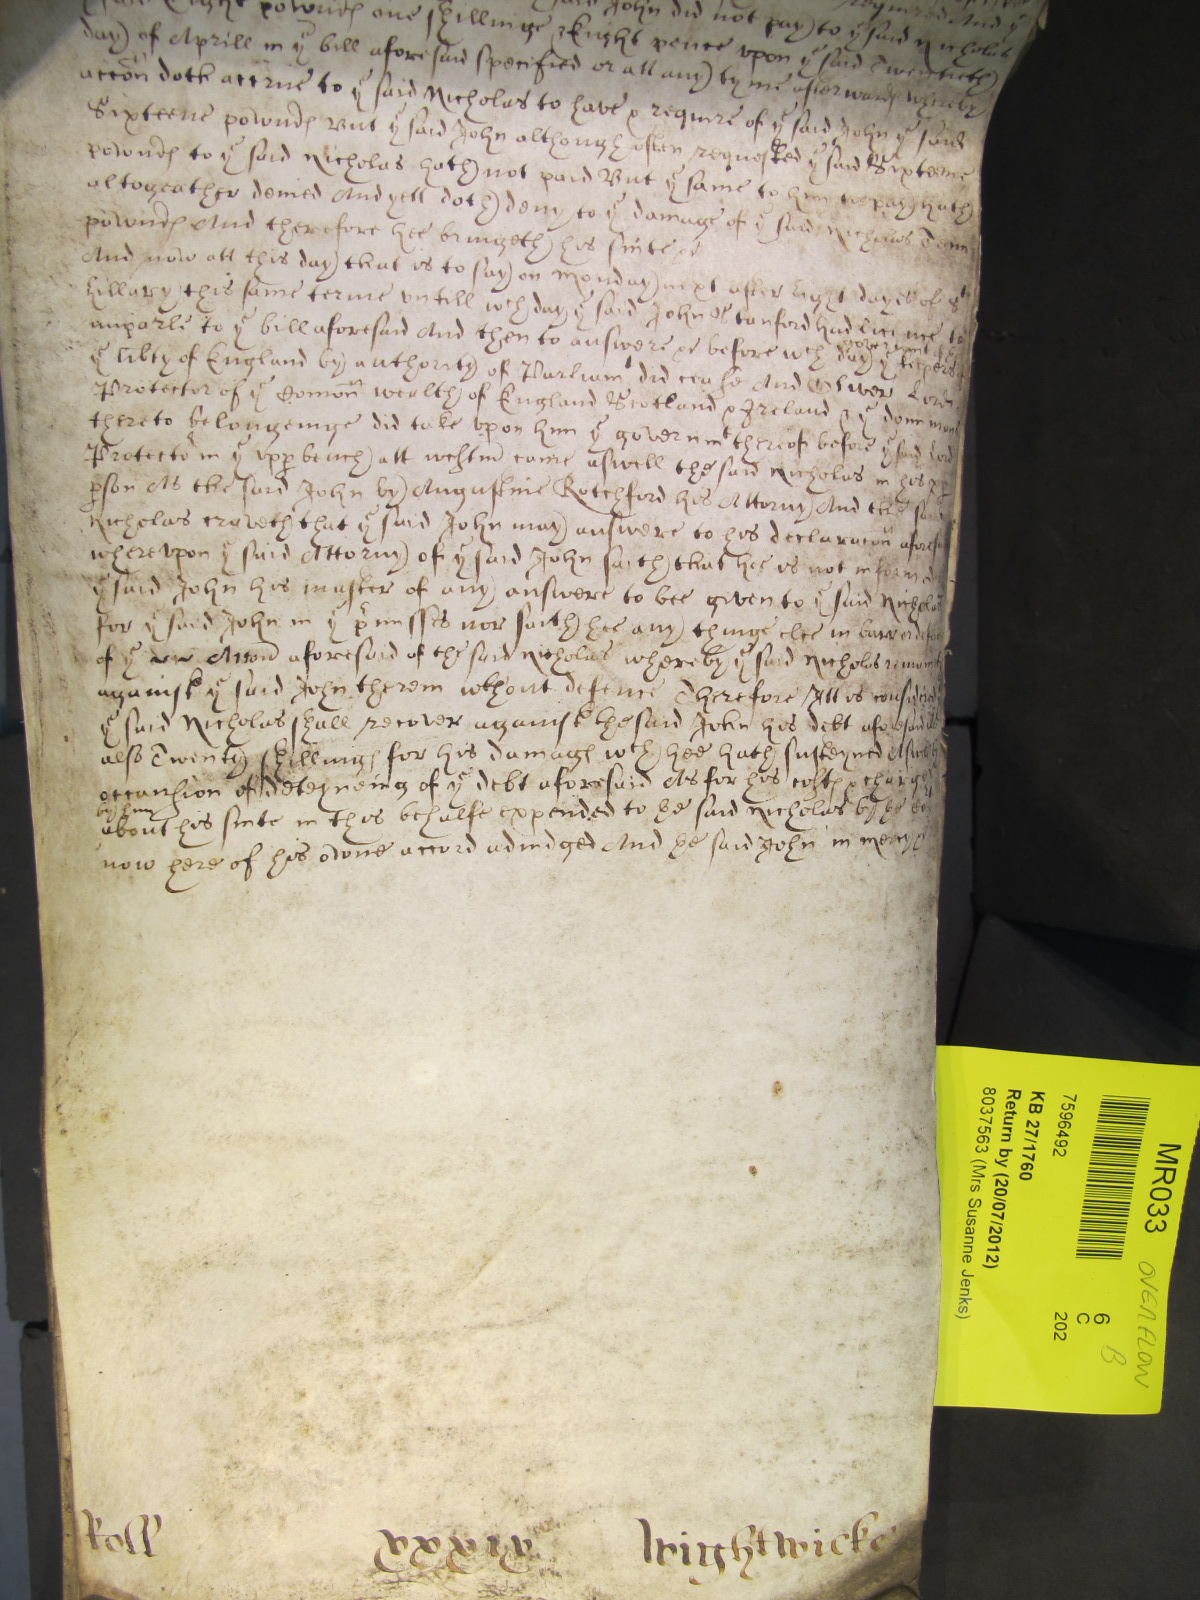 said Eight pownds one shillinge & Eight pence upon yͤ said Twentieth
said John did not pay to yͤ said Nicholas
required And yͤ
day of Aprill in yͤ bill aforesaid specified or att any tyme afterwards whereby
accōn doth accrue to yͤ said Nicholas to have & require of yͤ said John yͤ said
Sixteene pownds But yͤ said John although often requested yͤ said Sixteene
pownds to yͤ said Nicholas hath not paid But yͤ same to him to pay hath
altogeather denied And yett doth deny to yͤ damage of yͤ said Nicholas Tenn
pownds And therefore hee bringeth his suite &c
And now att this day that is to say on Monday next after Eight dayes of Sᵗ
hillary this same terme untill wch day yͤ said John Stanford had licence to
imparle to yͤ bill aforesaid And then to answere &c before wch day yͤ government keepers of
yͤ libty of England by authority of Parliamᵗ did cease And Oliver Lord
Protector of yͤ Comōn wealth of England Scotland & Ireland & yͤ dominions
thereto belongeinge did take upon him yͤ governmᵗ thereof before yͤ said Lord
Protectoʳ in yͤ upp bench att westmʳ came aswell the said Nicholas in his pp
pson As the said John by Augustine Rotchford his Attorny And the said
Nicholas craveth that yͤ said John may answere to his declaracōn aforesaid
whereupon yͤ said Attorny of yͤ said John saith that hee is not informed
yͤ said John his master of any answere to bee given to yͤ said Nicholas
for yͤ said John in yͤ pʳmisses nor saith hee any thinge else in barr
of yͤ Accōn aforesaid of the said Nicholas whereby yͤ said Nicholas remaineth
against yͤ said John therein wthout defence Therefore Itt is considered
yͤ said Nicholas shall recover against the said John his debt aforesaid
also Twenty shillings for his damags wch hee hath susteyned Aswell
occansion of deteyneing of yͤ debt aforesaid As for his costs & charges
by him
about his suite in this behalfe expended to the said Nicholas by the
now here of his owne accord adiudged And the said John in mercy &c
Roll xxxix Wightwicke
MR033
OVERFLOW
B
6
C
202
7596492
KB 27/1760
Return by (20/07/2012)
8037563 (Mrs Susanne Jenks)